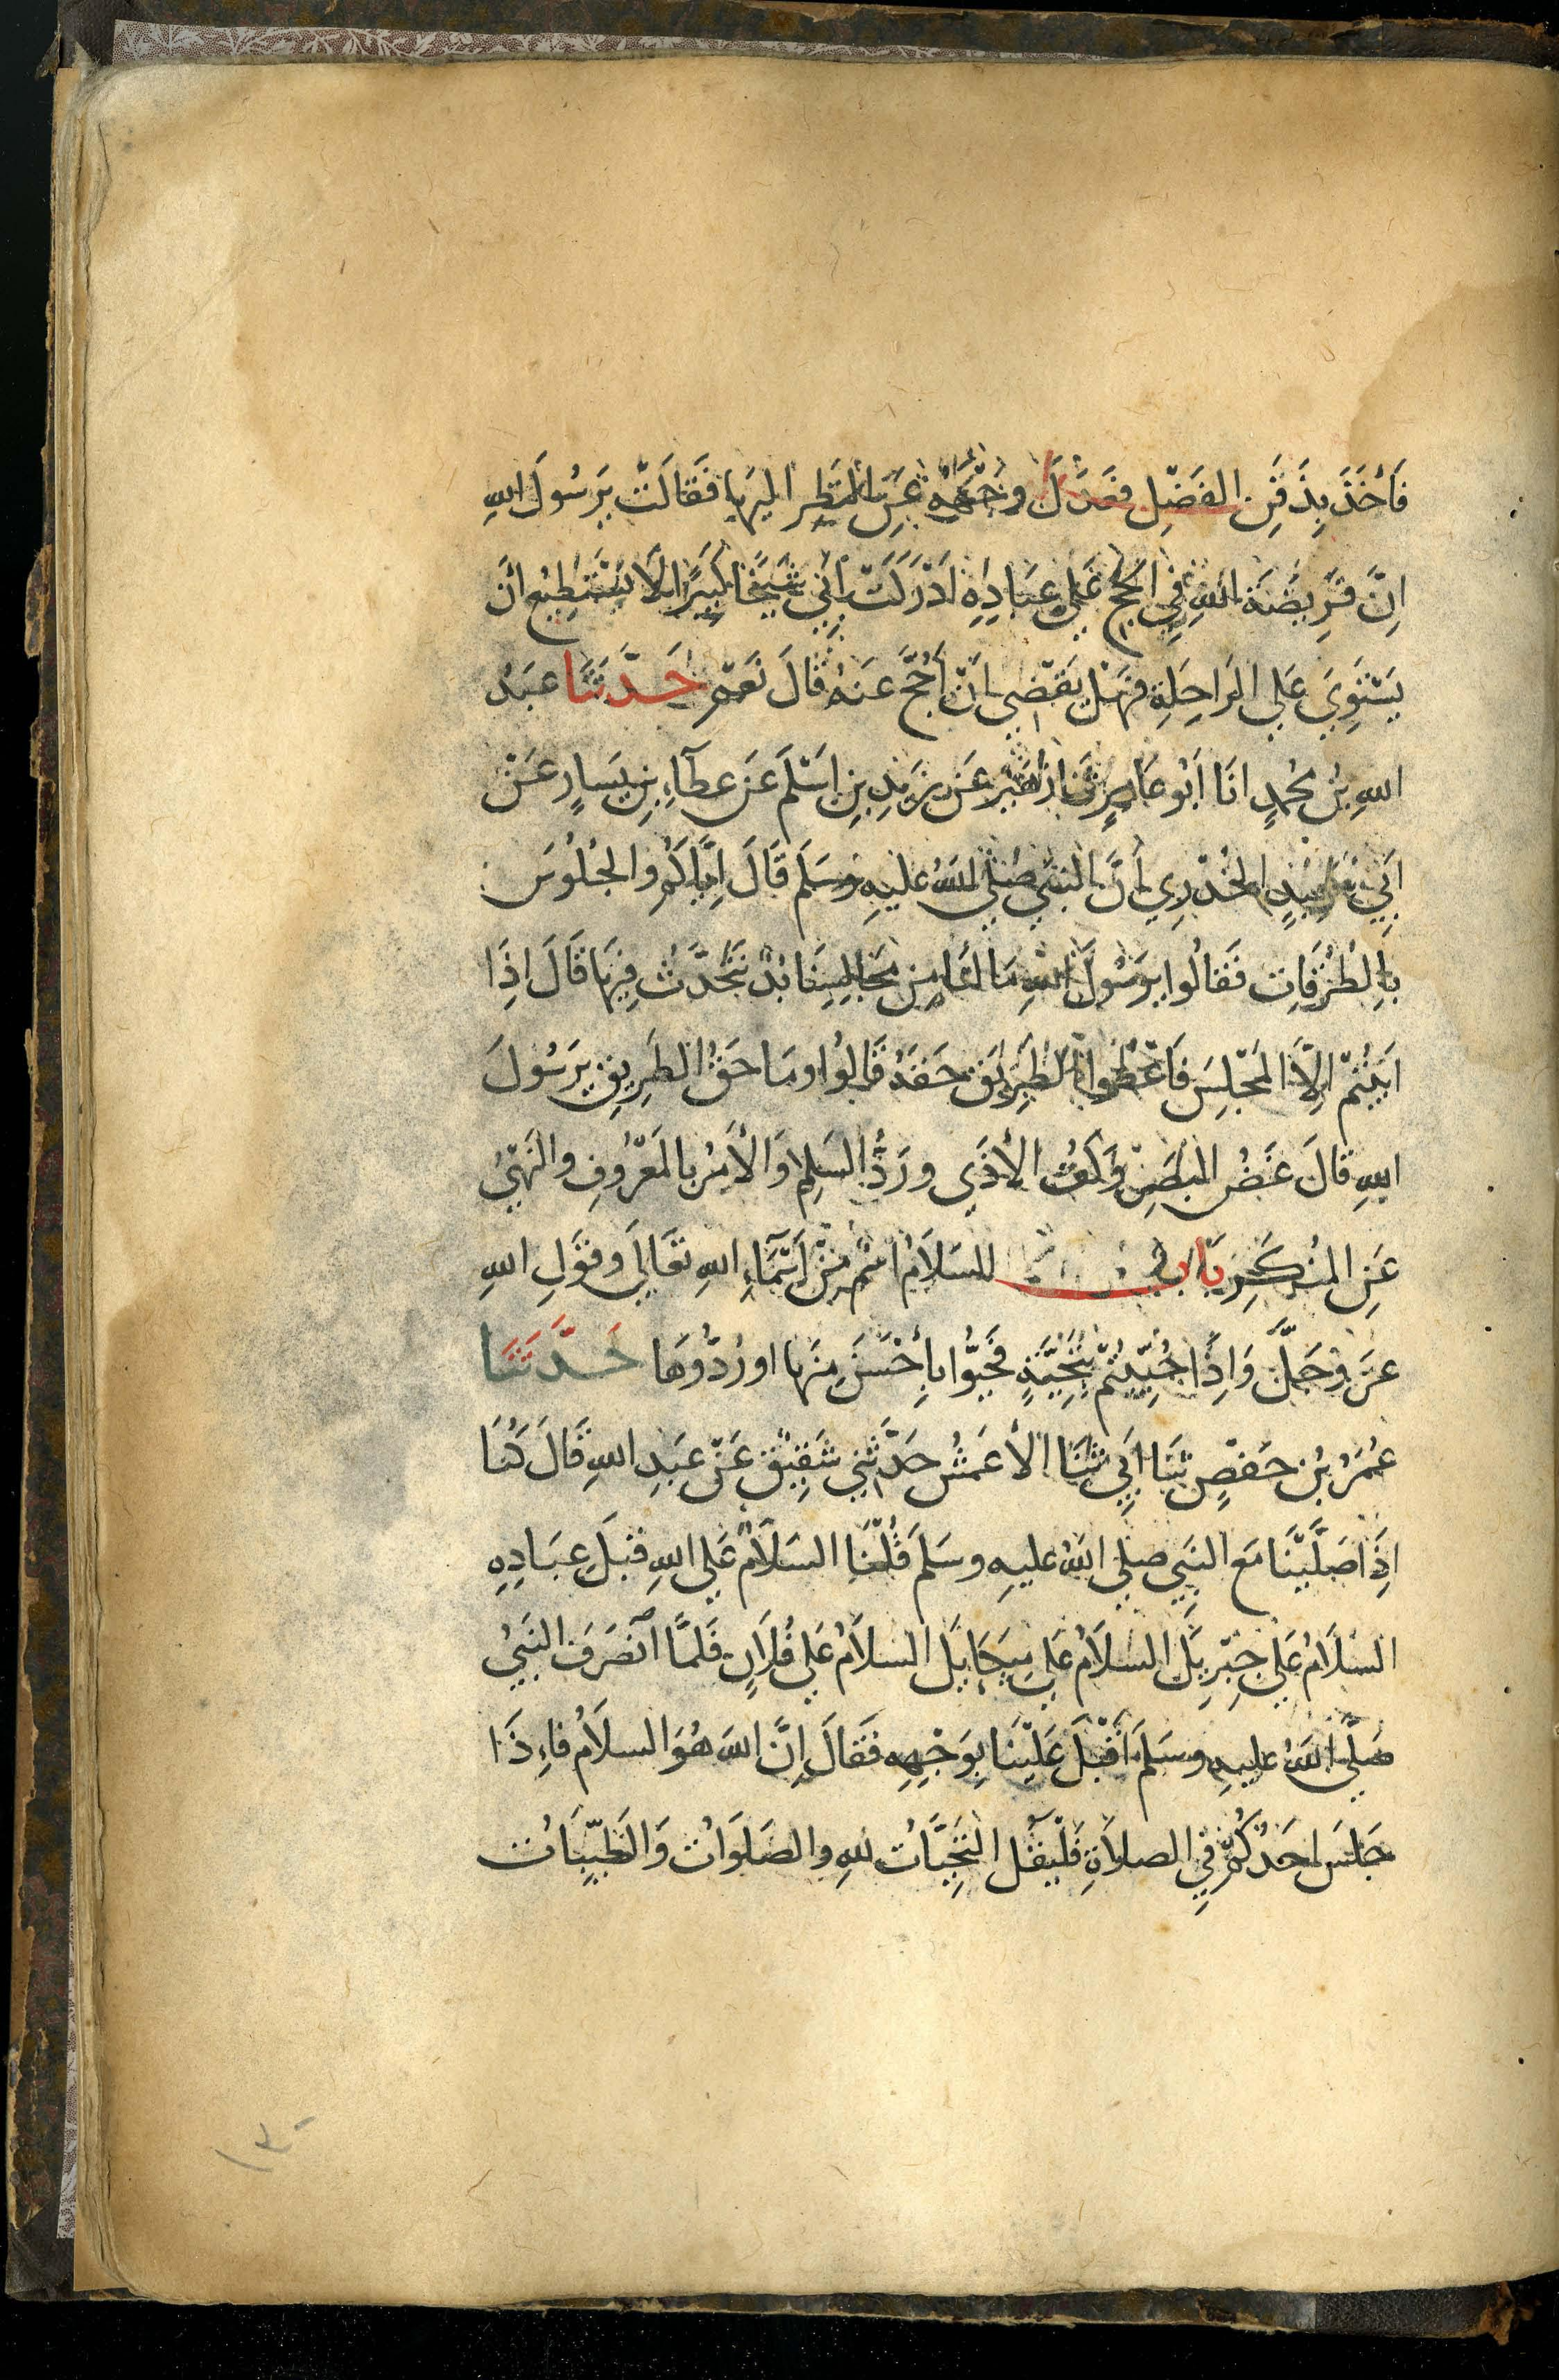 فَأَخَذَ بِذَقَنِ الفَضْلِ فَعَدَلَ وَجْهَهُ عَنِ النَّظَرِ اليهَا فَقَالَتْ يرَسُولَ اللهِ
اِنَّ فَرِيضَةَ اللهِ فِي الحَجِّ عَلَى عِبَادِهِ اَدْرَكَتْ اَبِي شَيْخًا كَبِيرًا لَا يَسْتَطِيعُ أَنْ
يَسْتَوِيَ عَلي الرَاحِلَةِ فهَلْ يَقْضِي اَنْ اَحُجَّ عَنهُ قَالَ نَعَمْ حَدَّثَنَا عَبدُ
اللهِ بنُ مُحمدٍ انَا اَبُو عَامِرٍ ثَنَا زُهَيْرٌ عَن زَيدِ بنِ اَسْلَمَ عَن عطآءِ بنِ يَسَارٍ عَنْ
اَبِي سَعِيدٍ الخُدْرِي أَنَّ النبيَّ صَلَّي اللهُ عليهِ وَسَلَمَ قَالَ اِيَّاكُم وَالجُلُوسَ
بِالطُرُقَاتِ فَقالُوا يرَسُولَ اللهِ مَا لنَا مِن مَجَالِسِنَا بُدٌّ نَتَحَدَّثُ فِيهَا قَالَ اِذَا
اَبَيْتُمْ اِلَّا المَجْلِسَ فَاَعْطُوا الطَرِيقَ حَقَّهُ قَالُوا وَمَا حَقُ الطَرِيقِ يرَسُولَ
اللهِ قَالَ غَضُ البَصَرِ وَكَفُّ الأَذَي ورَدُّ السَلِمِ وَالأَمْرُ بالمَعْرُوفِ والنَهْيُ
عَنِ المُنكَرِ بَابٌ السَلَامُ اسْم مِنْ اَسْمَآءِ اللهِ تعَالَي وقوْلِ اللهِ
عَزَّ وَجَلَّ وَاِذَا حُيِّيتُمْ بِتَحِيَّةٍ فَحَيُّوا بِأَحْسَنَ مِنهَا او رُدُّوهَا حَدَّثَنَا
عُمَرُ بْنُ حَفصٍ ثَنَا اَبِي ثَنَا الأعمَشُ حَدَّثَنِي شَقِيْقٌ عَنْ عَبدِ اللهِ قَالَ كُنَا
اِذَا صَلَّيْنَا مَع النبَيِ صلي اللهُ عليهِ وسَلمَ قُلْنَا السَلَامُ عَلَي اللهِ قبْلَ عِبَادِهِ
السَلَامُ عَلَي جِبْرِيلَ السلاَمُ عَلي مِيكَايلَ السلاَمُ عَلي فُلَانٍ فَلمَّا انْصَرَفَ النبَيُ
صَلَّي اللهُ عليهِ وسَلمَ اَقْبَلَ عَلَيْنَا بِوَجْهِهِ فَقَالَ إِنَّ اللهَ هُوَ السلاَمُ فاِذَا
جَلسَ احَدُكُمْ فِي الصلاَةِ فَلْيَقُل التَحِيَّاتُ للهِ والصَلَوَاتُ وَالطَيِّبَاتُ